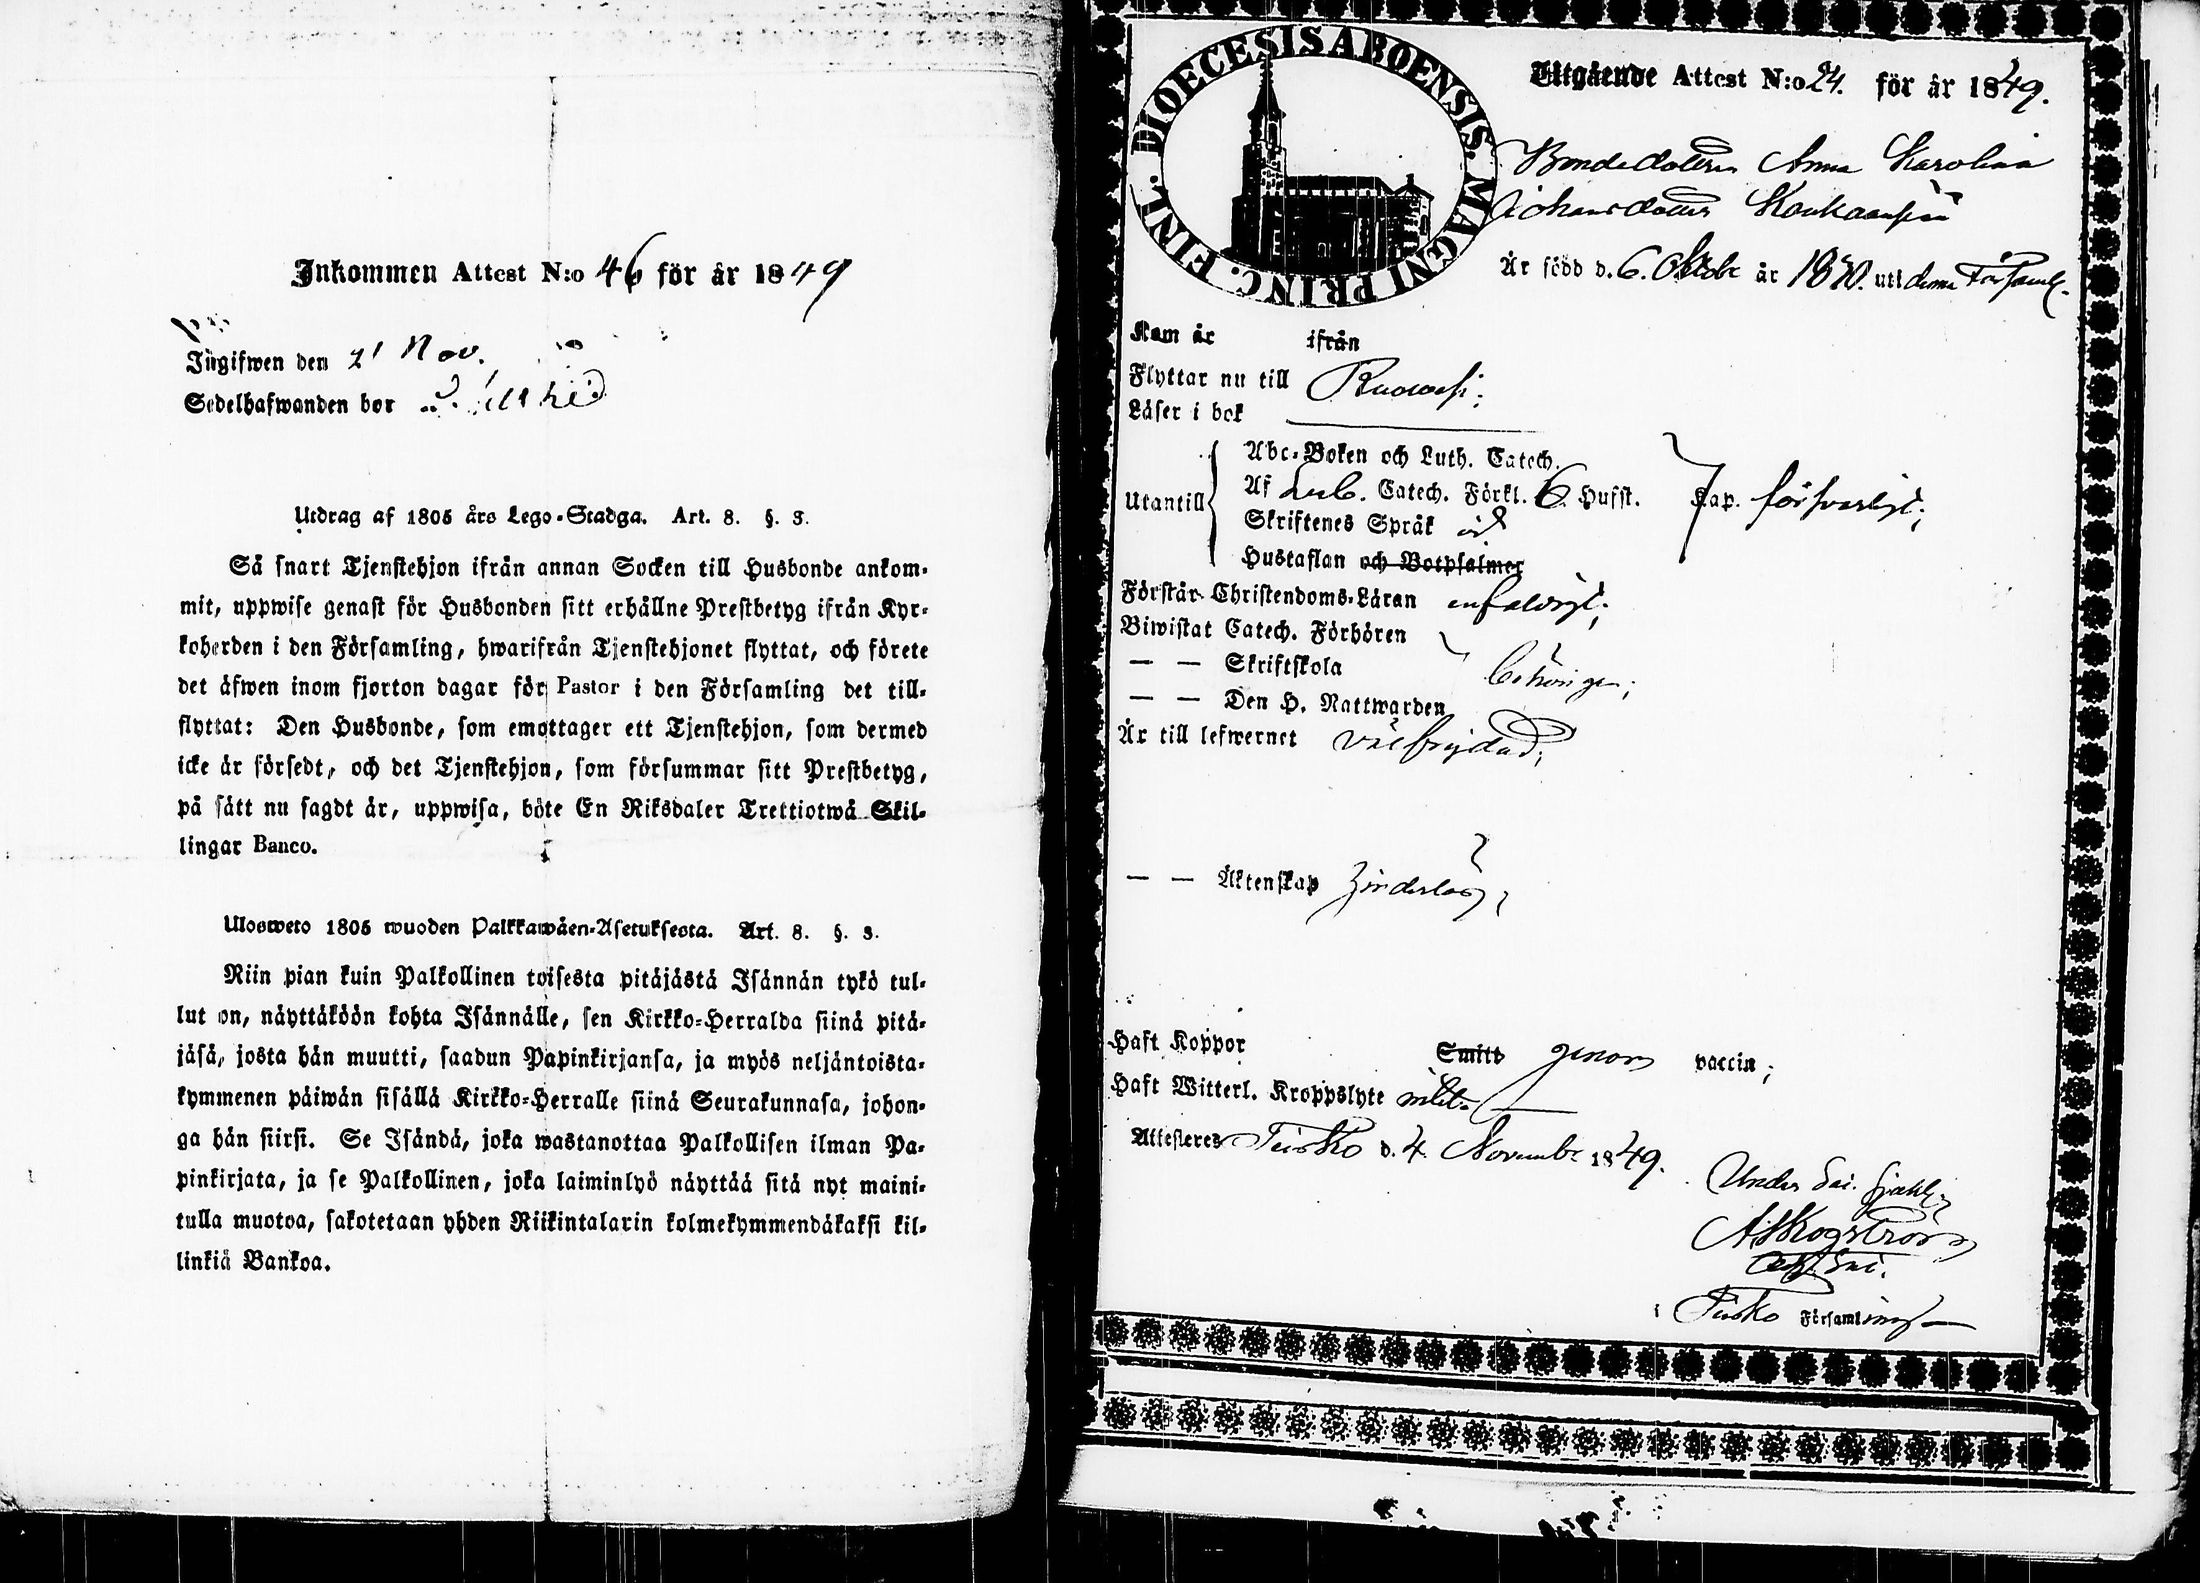 Inkommen Attest N:o 46 för år 1849
Jngifwen den 21 Nov.
Sedelhafwanden bor
Utdrag af 1805 års Lego-Stadga. Art. 8. §. 3.
Så snart Tjenstehjon ifrån annan Socken till Husbonde ankom-
mit, uppwise genast för Husbonden sitt erhållne Prestbetyg ifrån Kyr-
koherden i den Församling, hwarifrån Tjenstehjonet flyttat, och förete
det äfwen inom fjorton dagar för Pastor i den Församling det till-
flyttat: Den Husbonde, som emottager ett Tjenstehjon, som dermed
icke är försedt, och det Tjenstehjon, som försummar sitt Prestbetyg,
på sätt nu sagdt är, uppwisa, böte En Riksdaler Trettiotwå Skil-
lingar Banco.
Ulosweto 1805 wuoden Palkkawäen-Asetuksesta. Art. 8. §. 3.
Niin pian kuin Palkollinen toisesta pitäjästä Isännän tykö tul-
lut on, näyttäköön kohta Isännälle, sen Kirkko-Herralda siinä pitä-
jäsä, josta hän muutti, saadun Papinkirjansa, ja myös neljäntoista-
kymmenen päiwän sisällä Kirkko-Herralle siinä Seurakunnasa, johon-
ga hän siirsi. Se Isändä, joka wastanottaa Palkollisen ilman Pa-
pinkirjata, ja se Palkollinen, joka laiminlyö näyttää sitä nyt maini-
tulla muotoa, sakotetaan yhden Riikintalarin kolmekymmendäkaksi kil-
linkiä Bankoa.
FINL. DIOECESIS ABOENSIS. MAGNI PRINC.
Utgående Attest N:o 24. för år 1849.
Bondedottren Anna Karolina
Johansdotter
Är född d. 6. Octobr år 1830. uti denna Församl.
Kom år ifrån
Flyttar nu till Ruovesi;
Läser i bok
Utantill
Abc-Boken och Luth. Catech.
Af Catech. Förkl. 6 Hufst. Kap. försvarligt;
Skriftenes Språk
Hustaflan och Botpsalmer
Förstår Christendoms-Läran enfaldigt;
Biwistat Catech. Förhören
— — Skriftskola behörigen;
— — Den H. Nattwarden
Är till lefwernet välfrejdad;
— — Äktenskap hinderlös;
Haft Koppor Smitt genom vaccin;
Haft Witterl. Kroppslyte intet.
Attesteres Teisko d. 4. Novembr 1849.
Under
A Skogström
i Teisko Församling